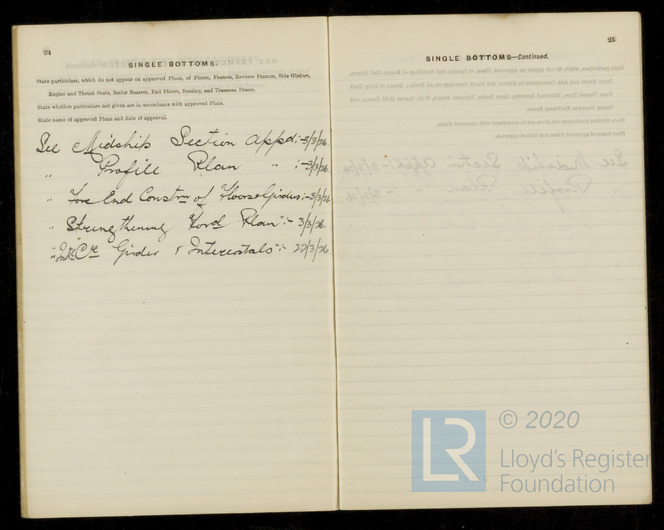 24
SINGLE BOTTOMS.
State particulars, which do not appear on approved Plans, of Floors, Frames, Reverse Frames, Side Girders,
Engine and Thrust Seats, Boiler Bearers, End Floors, Bracing, and Transom Floors.
State whether particulars not given are in accordance with approved Plans.
State name of approved Plans and date of approval.
See Midship Section appd:- 3/3/26
" Profile Plan " :- 3/3/26
" Fore End Constrn of Floors & Girders:- 3/3/26
" Strengthening Ford Plan":- 3/3/26.
" Girder & Intercostals":- 22/3/26
25
SINGLE BOTTOMS—Continued.
LR
© 2020
Lloyd's Register
Foundation